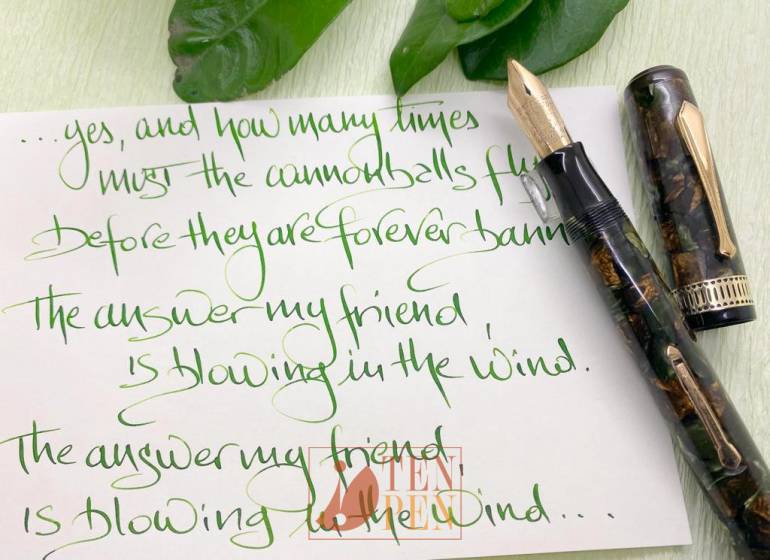 ...yes, and how many times
must the cannonballs fly
Before they are forever bann
The answer my friend,
is blowing in the wind.
The answer my friend,
is blowing in the wind....
TEN
PEN